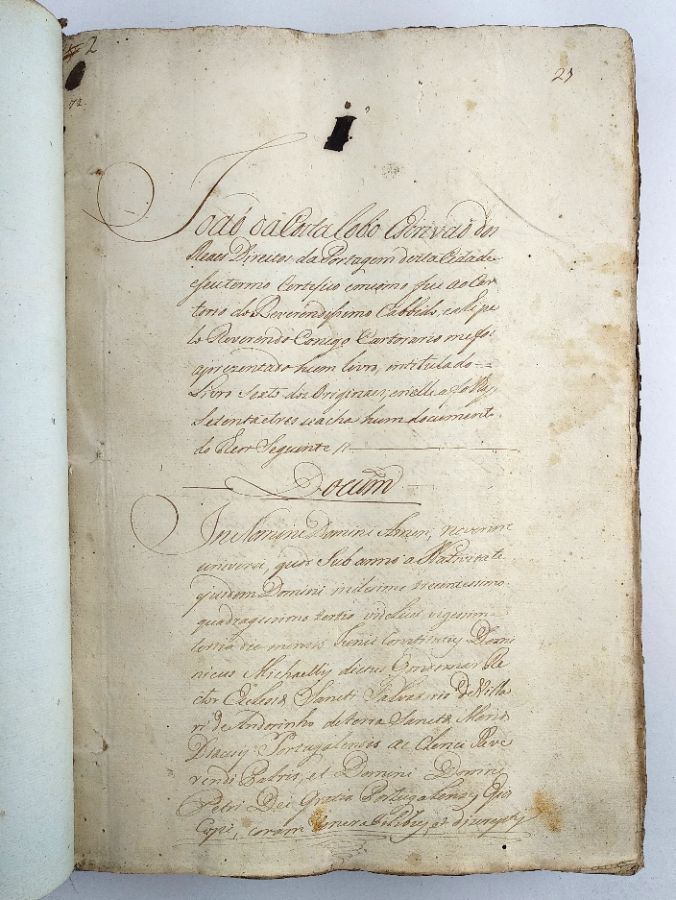 2
23
72
João da Costa Lobo Escrivão dos
Reaes Direitos da Portagem desta Cidade
e seu termo Certefico em como fui ao Car
torio do Reverendissimo Cabbido, e ahi pe
lo Reverendo Conigo Cartorario me foi
aprezentado hum livro, intitulado =
Livro Sexto dos Originaes, e nelle a folhas
Setenta e tres se acha hum document
do theor Seguinte //
Docum
In Nomine Domini Amen, noverint
universi, quod Sub anno a Nativitate
ejusdem Domini milesimo trecentessimo
quadragesimo tertio videlicet vigesima
tertia die mensis Junii Constitutus Domi
nicus Michaellis dictus Re
ctor Eclesiæ Sancti Salvatoris de Villa
ri de Andorinho de terra Sanctæ Mariæ
Diæcesis Portugalensis ac Clerici Reve
rendi Patris, et Domini Domini
Petri Dei Gratia Portugalensis Epis
copi, coram venerabilibus, et discretis